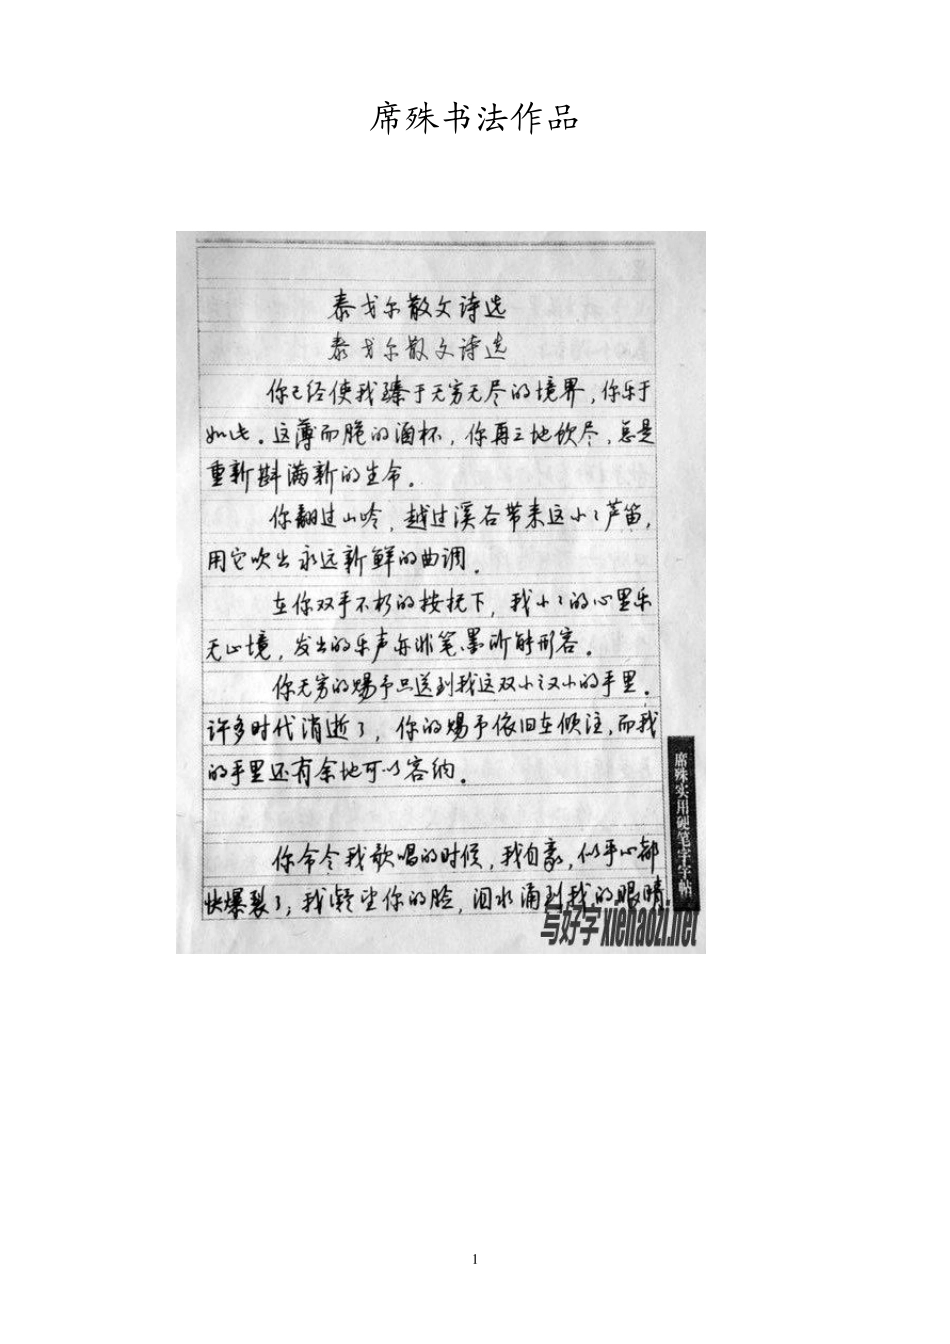 席殊书法作品
泰戈尔散文诗选
泰戈尔散文诗选
你已经使我臻于无穷无尽的境界，你乐于
如此。这薄而脆的酒杯，你再三地饮尽，总是
重新斟满新的生命。
你翻过山岭，越过溪谷带来这小小芦笛，
用它吹出永远新鲜的曲调。
在你双手不朽的按抚下，我小小的心里乐
无止境，发出的乐声亦非笔墨所能形容。
你无穷的赐予只送到我这双小之又小的手里。
许多时代消逝了，你的赐予依旧在倾注，而我
的手里还有余地可以容纳。
你命令我歌唱的时候，我自豪，似乎心都
快爆裂了；我凝望你的脸，泪水涌到我的眼睛。
席殊实用硬笔字字帖
写好字 xiehaozi.net
1